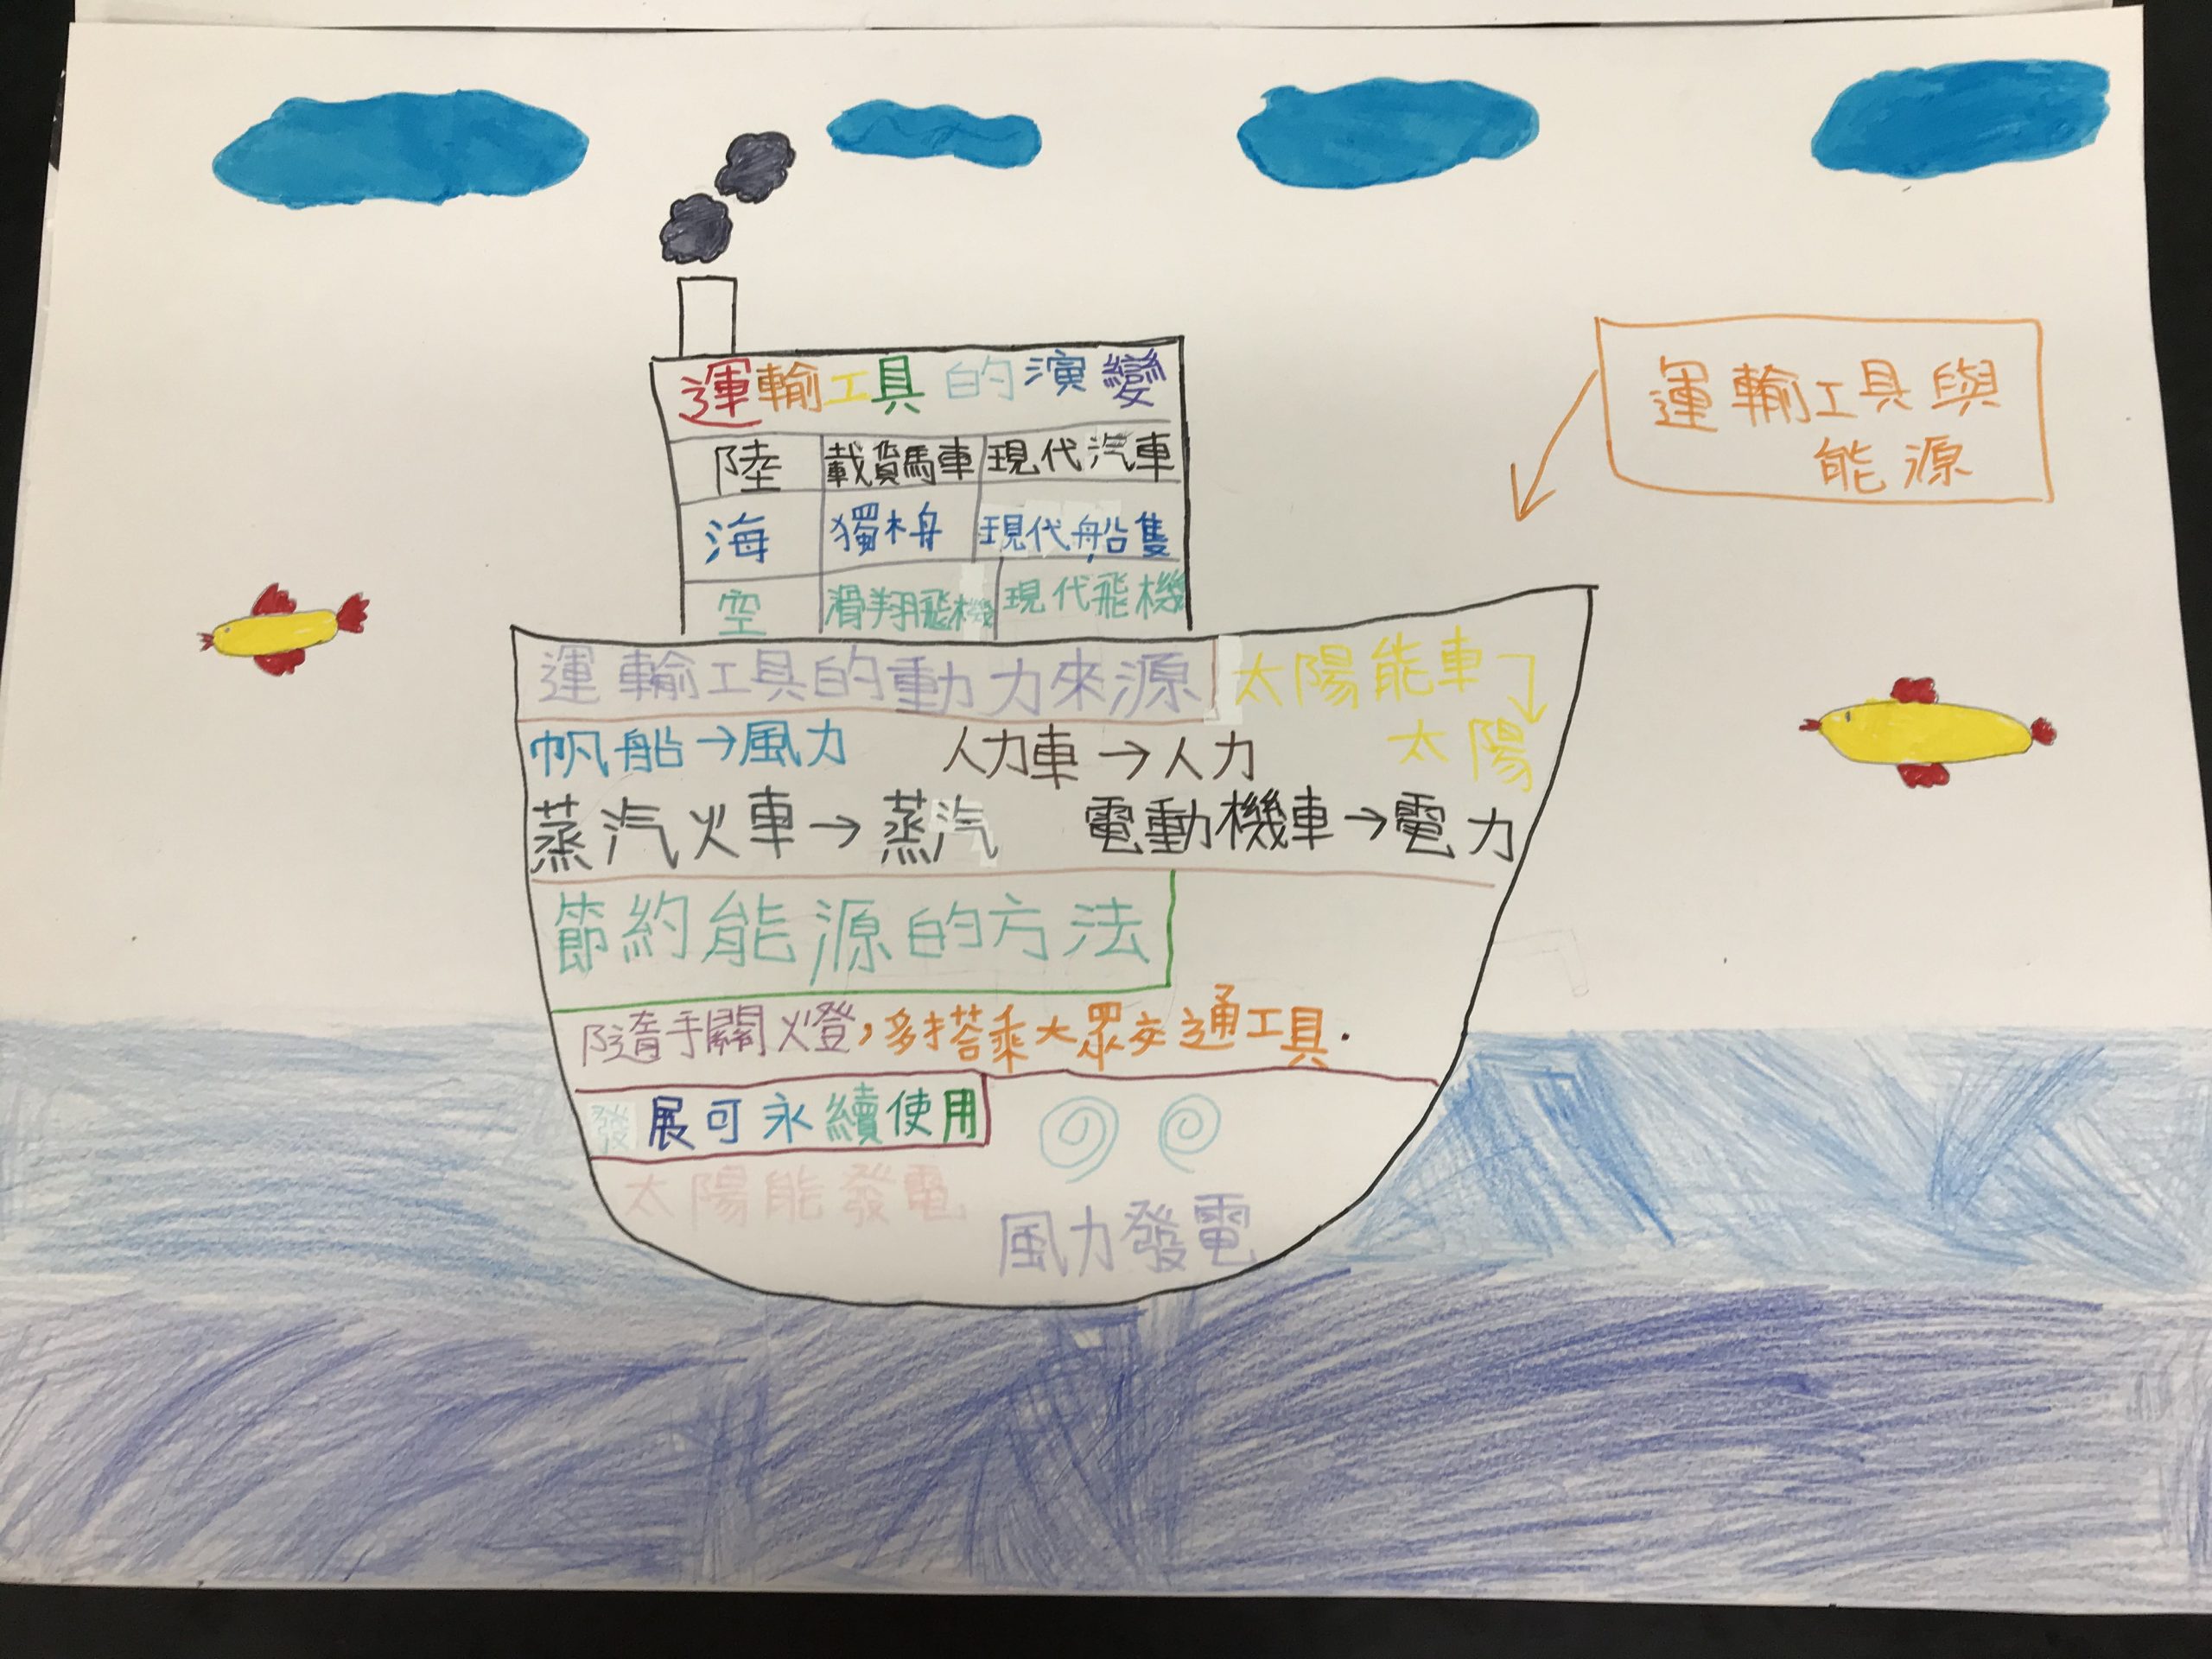 運輸工具與
能源
運輸工具的演變
陸 載貨馬車 現代汽車
海 獨木舟 現代船隻
空 滑翔飛機 現代飛機
運輸工具的動力來源
太陽能車→
太陽
帆船→風力 人力車→人力
蒸汽火車→蒸汽 電動機車→電力
節約能源的方法
隨手關火燈,多搭乘大眾交通工具.
發展可永續使用
太陽能發電
風力發電